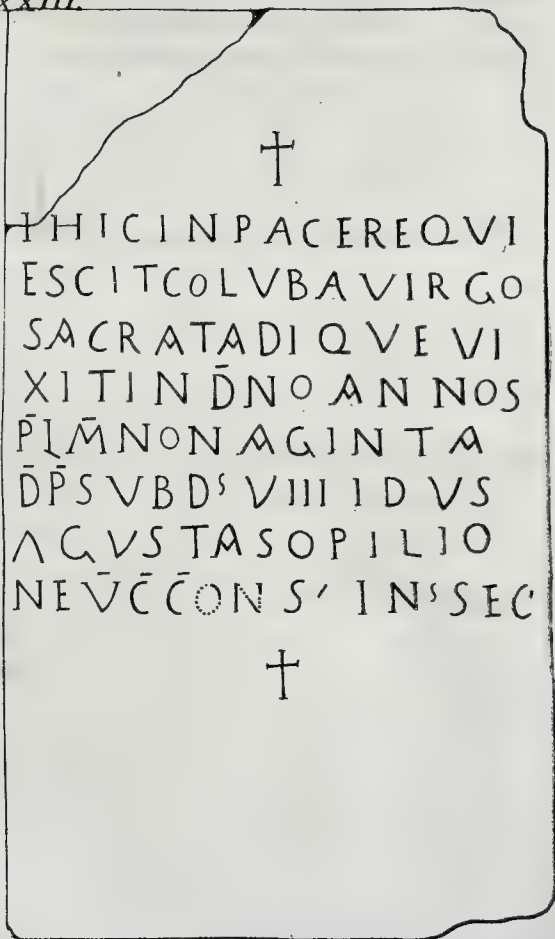 XXIII.
†
†HICINPACEREQVI
ESCITCOLVBAVIRGO
SACRATADIQVEVI
XITIND̄NOANNOS
P̄LM̄NONAGINTA
D̄P̄SVBDˢVIIIIDVS
AGVSTASOPILIO
NEV̄C̄C̄ONS′INˢSEC′
†